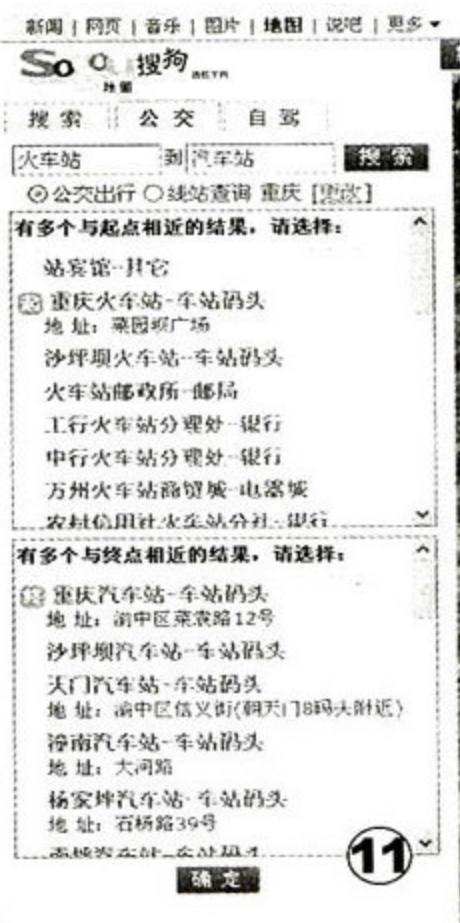 新闻 | 网页 | 音乐 | 图片 | 地图 | 说吧 | 更多
So ou 搜狗 BETA
地图
搜索 公交 自驾
火车站 到 汽车站 搜索
公交出行 线站查询 重庆 [更改]
有多个与起点相近的结果，请选择：
站宾馆--其它
重庆火车站--车站码头
地址：菜园坝广场
沙坪坝火车站--车站码头
火车站邮政所--邮局
工行火车站分理处--银行
中行火车站分理处--银行
万州火车站商贸城--电器城
农村信用社火车站分社--银行
有多个与终点相近的结果，请选择：
重庆汽车站--车站码头
地址：渝中区菜袁路12号
沙坪坝汽车站--车站码头
天门汽车站--车站码头
地址：渝中区信义街(朝天门8码头附近)
潼南汽车站--车站码头
地址：大同路
杨家坪汽车站--车站码头
地址：石杨路39号
汽车站--车站码头
11
确定